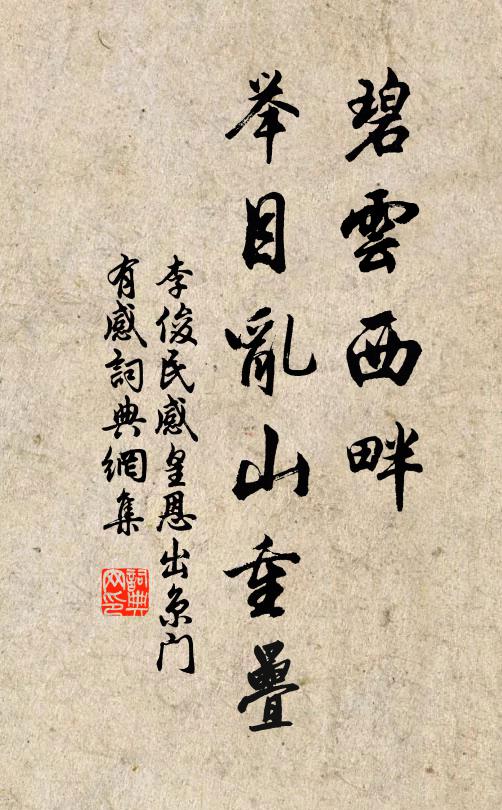 碧雲西畔
举目亂山重疊
李俊民感皇恩出京门
有感詞典網集
詞典
网印